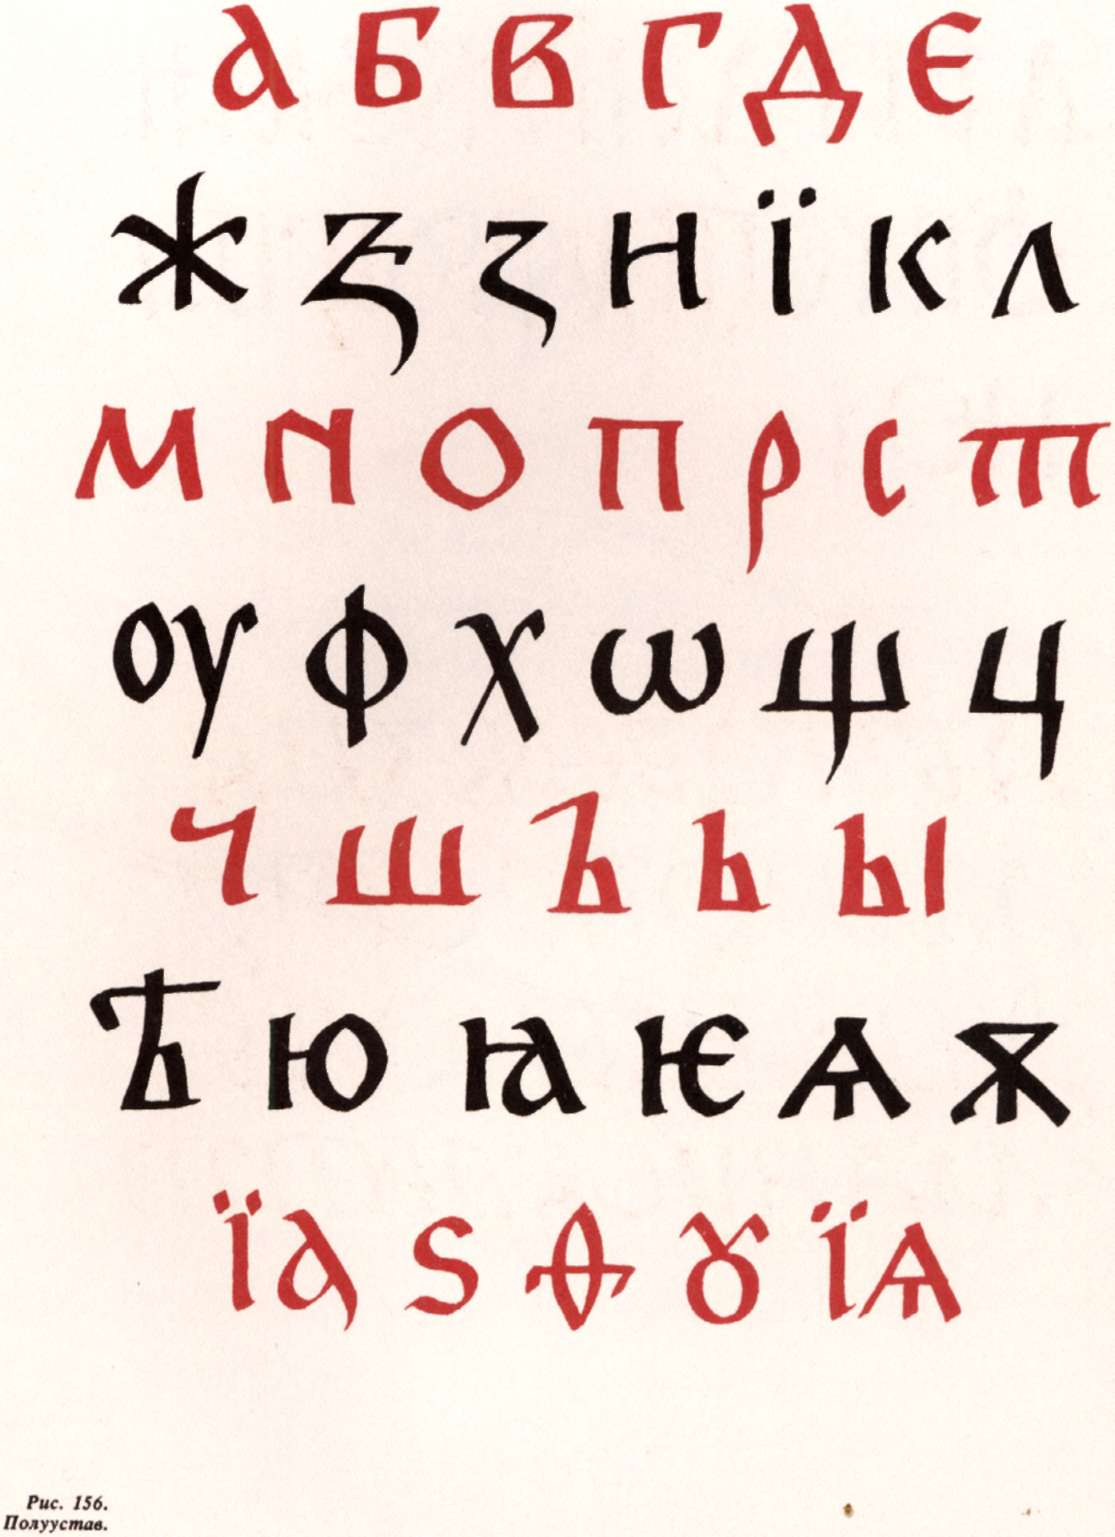 а б в г д є
ж ѯ з н ї к л
м н о п р с т
оу ф х ѡ щ ц
ч ш ъ ь ы
ѣ ю ꙗ ѥ ѧ ѫ
ї а ѕ ѳ ꙋ ї ѧ
Рис. 156.
Полуустав.